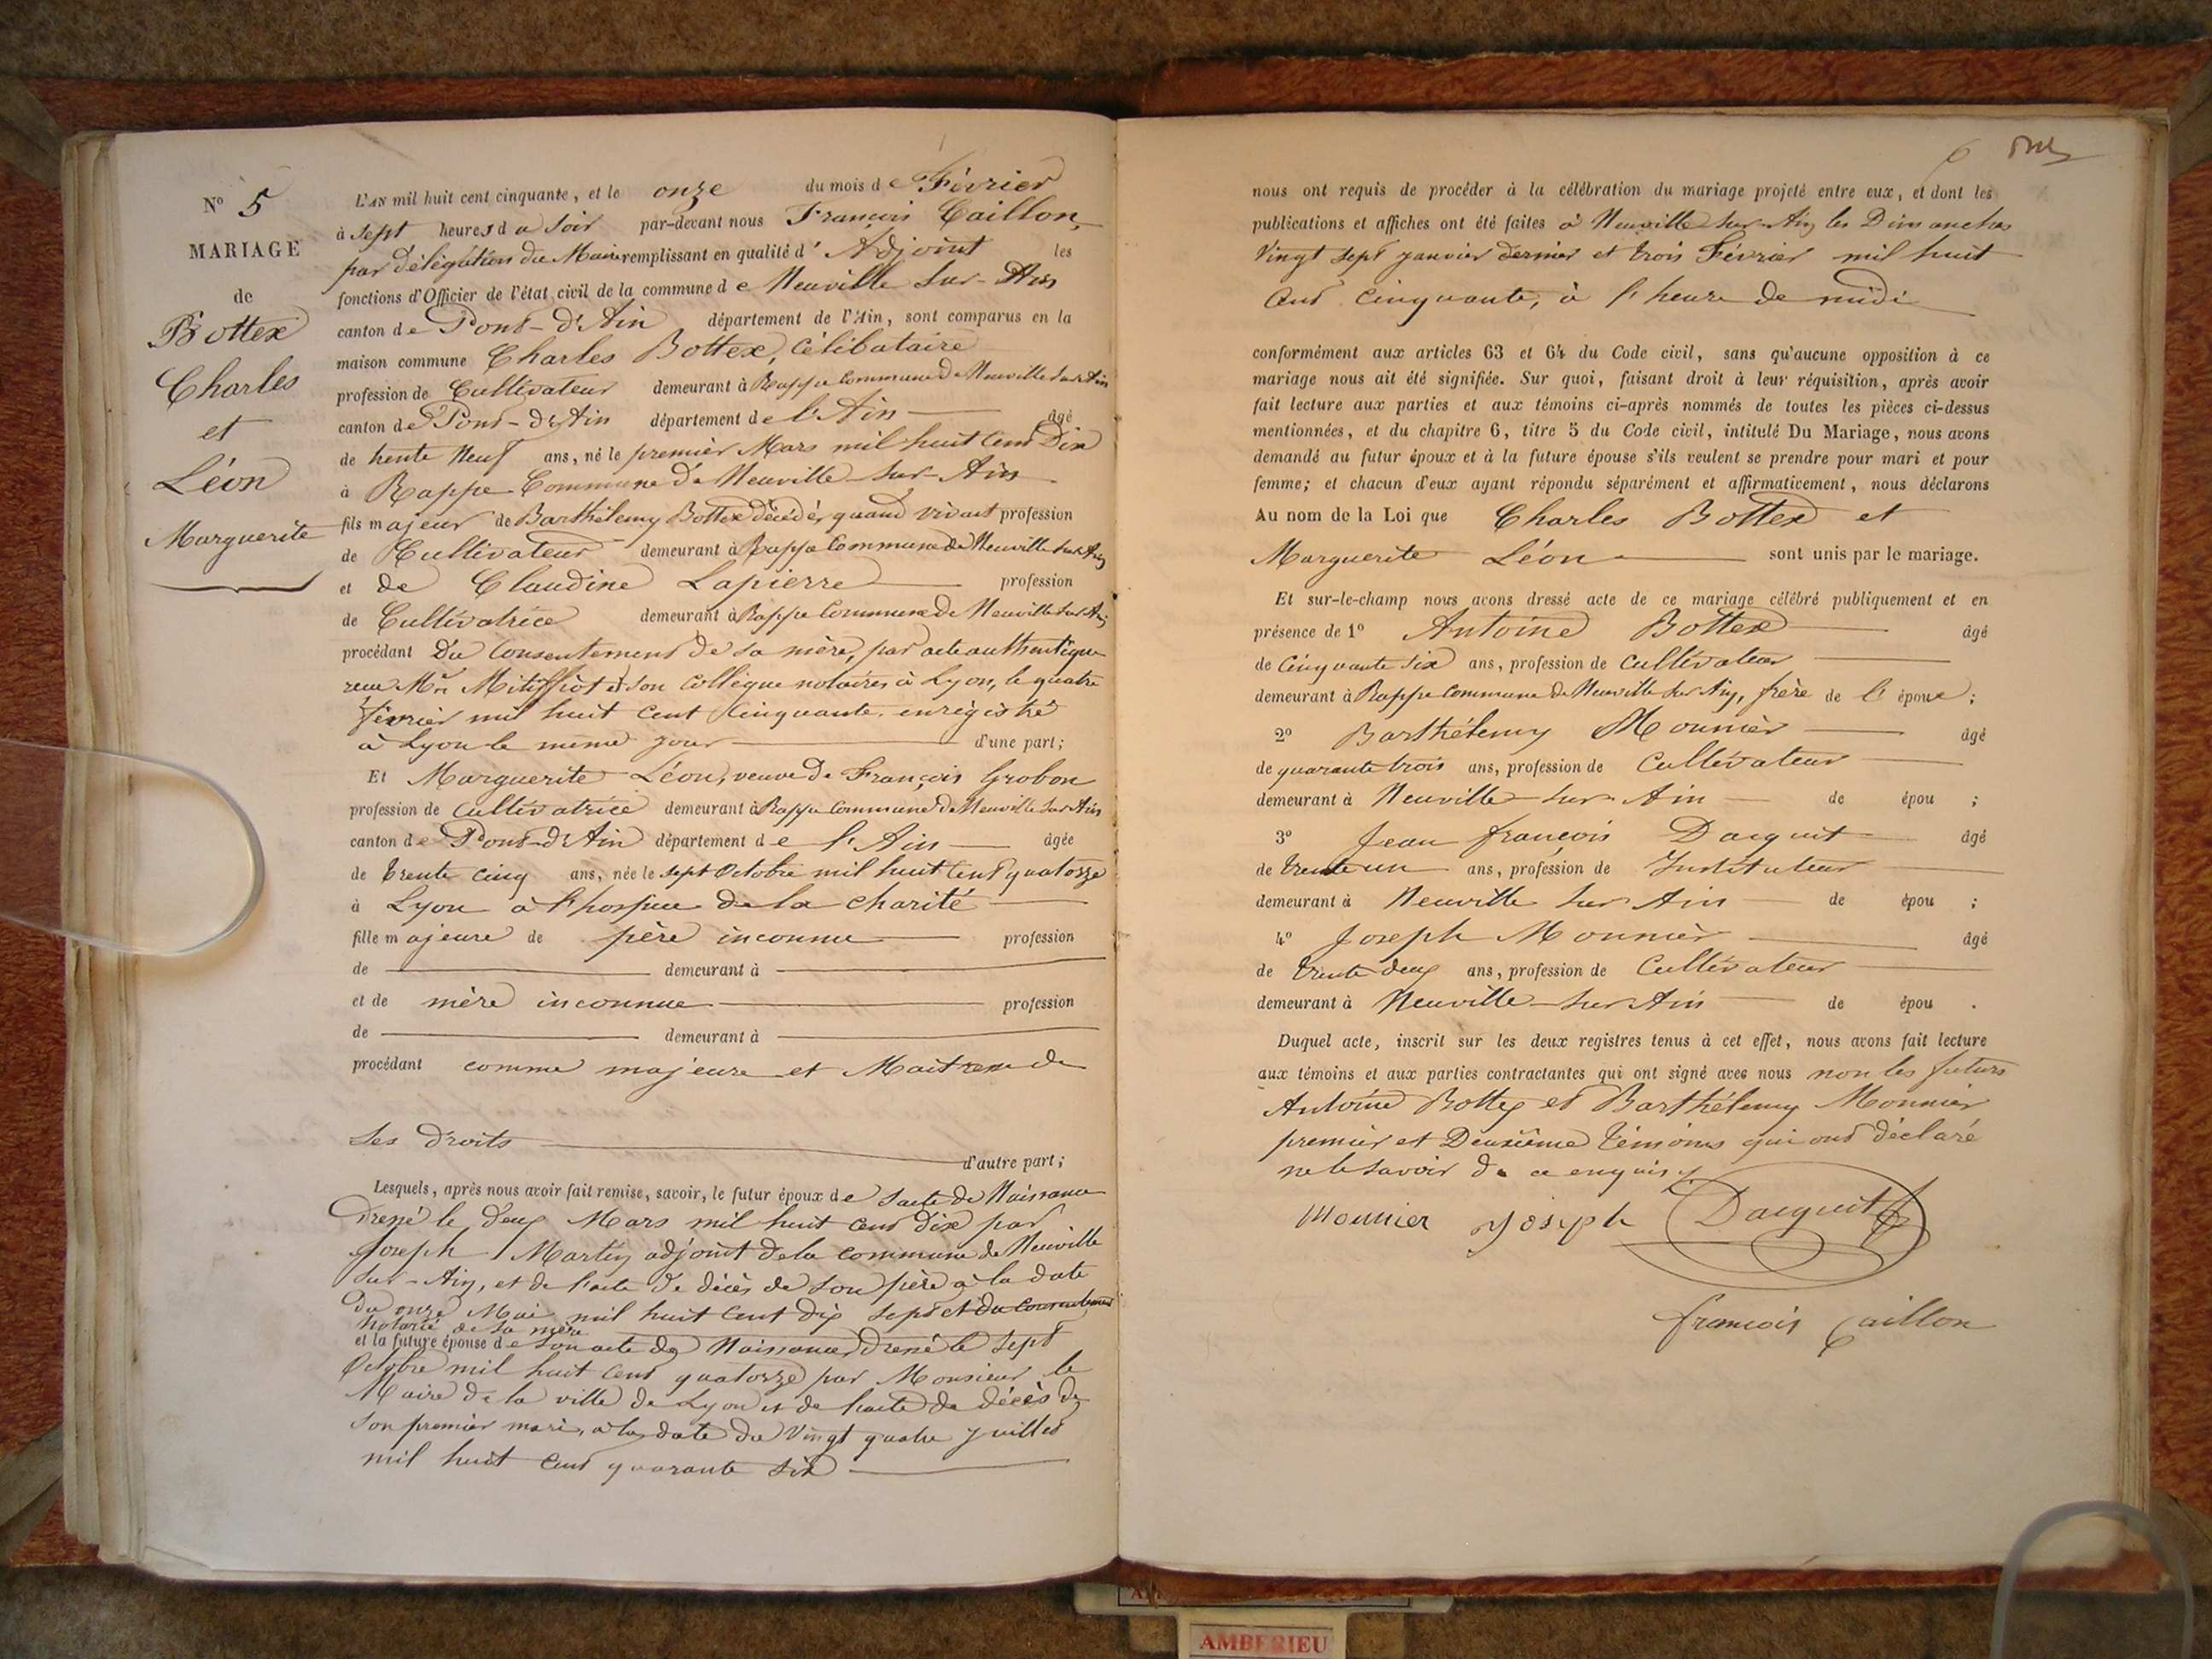 Nº 5
MARIAGE
de
Bottex
Charles
et
Léon
Marguerite
L'AN mil huit cent cinquante, et le onze du mois de Février
à sept heures du soir par-devant nous François Caillon,
par délégation du Maire remplissant en qualité d'Adjoint les
fonctions d'Officier de l'état civil de la commune de Neuville sur-Ain
canton de Pont-d'Ain département de l'Ain, sont comparus en la
maison commune Charles Bottex, célibataire
profession de Cultivateur demeurant à Rappe Commune de Neuville sur Ain
canton de Pont-d'Ain département de l'Ain âgé
de trente Neuf ans, né le premier Mars mil huit Cent Dix
à Rappe Commune de Neuville sur-Ain
fils majeur de Barthélemy Bottex décédé, quand vivait profession
de Cultivateur demeurant à Rappe Commune de Neuville sur Ain
et de Claudine Lapierre profession
de Cultivatrice demeurant à Rappe Commune de Neuville sur Ain
procédant Du Consentement de sa mère, par acte authentique
reçu Mre Mitiffiot et son Collègue notaires à Lyon, le quatre
février mil huit cent Cinquante enrégistré
à Lyon le même jour d'une part;
Et Marguerite Léon, veuve de François Grobon
profession de Cultivatrice demeurant à Rappe Commune de Neuville sur Ain
canton de Pont-d'Ain département de l'Ain âgée
de trente cinq ans, née le sept Octobre mil huit Cent quatorze
à Lyon à l'hospice de la charité
fille majeure de père inconnu profession
de demeurant à
et de mère inconnue profession
de demeurant à
procédant comme majeure et Maitresse de
ses droits
d'autre part;
Lesquels, après nous avoir fait remise, savoir, le futur époux de l'acte de Naissance
dressé le deux Mars mil huit cent dix par
Joseph Martin adjoint de la commune de Neuville
sur-Ain, et de l'acte de décès de son père à la date
du onze Mai mil huit Cent dix sept et du Consentement
notarié de sa mère
et la future épouse de son acte de Naissance dressé le sept
Octobre mil huit Cent quatorze par Monsieur le
Maire de la ville de Lyon et de l'acte de décès de
son premier mari, à la date du Vingt quatre Juillet
mil huit Cent quarante six
6
nous ont requis de procéder à la célébration du mariage projeté entre eux, et dont les
publications et affiches ont été faites à Neuville sur-Ain les Dimanches
Vingt sept janvier dernier et trois Février mil huit
Cent Cinquante, à l'heure de midi
conformément aux articles 63 et 64 du Code civil, sans qu'aucune opposition à ce
mariage nous ait été signifiée. Sur quoi, faisant droit à leur réquisition, après avoir
fait lecture aux parties et aux témoins ci-après nommés de toutes les pièces ci-dessus
mentionnées, et du chapitre 6, titre 5 du Code civil, intitulé Du Mariage, nous avons
demandé au futur époux et à la future épouse s'ils veulent se prendre pour mari et pour
femme; et chacun d'eux ayant répondu séparément et affirmativement, nous déclarons
Au nom de la Loi que Charles Bottex et
Marguerite Léon sont unis par le mariage.
Et sur-le-champ nous avons dressé acte de ce mariage célébré publiquement et en
présence de 1º Antoine Bottex âgé
de Cinquante six ans, profession de Cultivateur
demeurant à Rappe Commune de Neuville sur Ain, frère de l'époux;
2º Barthélemy Mounier âgé
de quarante trois ans, profession de Cultivateur
demeurant à Neuville sur Ain de épou ;
3º Jean françois Darguit âgé
de trente un ans, profession de Instituteur
demeurant à Neuville sur Ain de épou ;
4º Joseph Mounier âgé
de trente deux ans, profession de Cultivateur
demeurant à Neuville sur Ain de épou .
Duquel acte, inscrit sur les deux registres tenus à cet effet, nous avons fait lecture
aux témoins et aux parties contractantes qui ont signé avec nous non les futurs
Antoine Bottex et Barthélemy Monnier
premier et Deuxième témoins qui ont déclaré
ne le savoir de ce enquis
Mounier Joseph Darguit
francois Caillon
AMBERIEU